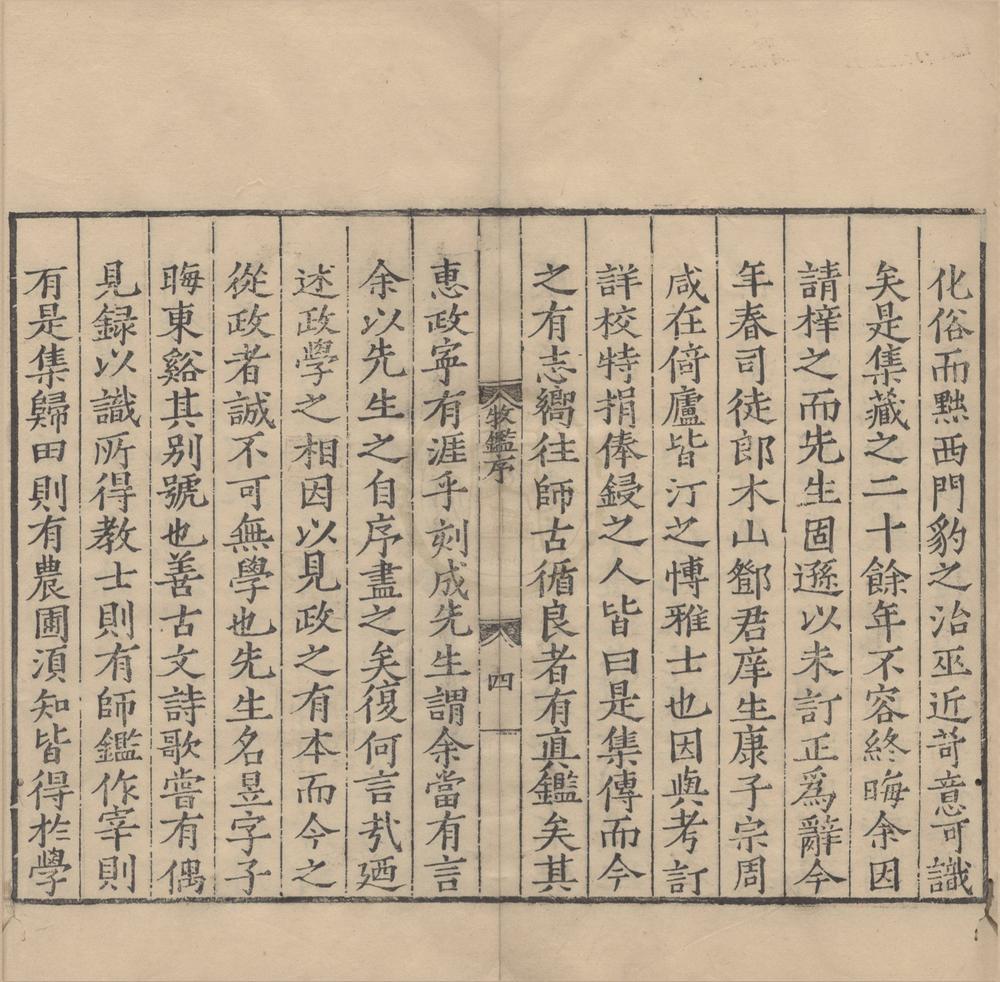 化俗而黜西門豹之治巫近苛意可識
矣是集藏之二十餘年不容終晦余因
請梓之而先生固遜以未訂正爲辭今
年春司徒郎木山鄧君庠生康子宗周
咸在倚廬皆汀之博雅士也因與考訂
詳校特捐俸鋟之人皆曰是集傳而今
之有志嚮往師古循良者有真鑑矣其
牧鑑序
四
惠政寜有涯乎刻成先生謂余當有言
余以先生之自序盡之矣復何言㢤廼
述政學之相因以見政之有本而今之
從政者誠不可無學也先生名昱字子
晦東谿其别號也善古文詩歌嘗有偶
見録以識所得教士則有師鑑作宰則
有是集歸田則有農圃須知皆得扵學